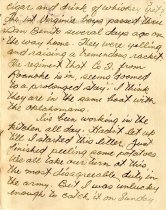 cigar and drink of whiskey Get.
The 1st Virginia boys passed thru
San Benito several days ago on
the way home. They were yelling
and raising a tremendous racket
The regiment that Co. I. from
Roanoke is in, seems doomed
to a prolonged stay. I think
they are in the same boat with
the Oklahomans.
I've been working in the
kitchen all day. Hadn't let up
till I started this letter. Just
finished peeling some potatoes
We all take our turn at this
the most disagreeable duty in
the army. But I was unlucky
enough to catch it on Sunday